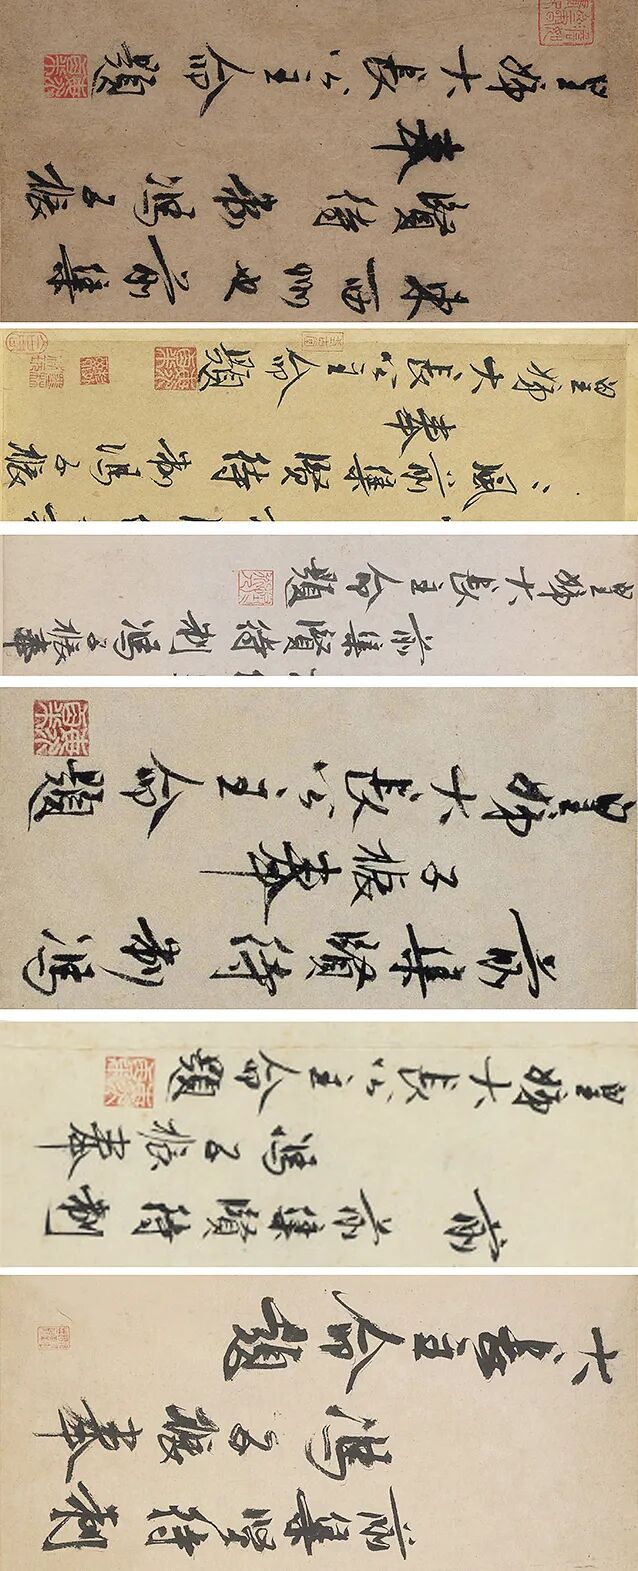 東西州也前集
賢待制馮子振
奉
皇姊大長公主命題
風前集賢待制馮子振
奉
皇姊大長公主命題
前集賢待制馮子振奉
皇姊大長公主命題
前集賢待制馮
子振奉
皇姊大長公主命題
前集賢待制
馮子振奉
皇姊大長公主命題
前集賢待制
馮子振奉
大長主命題